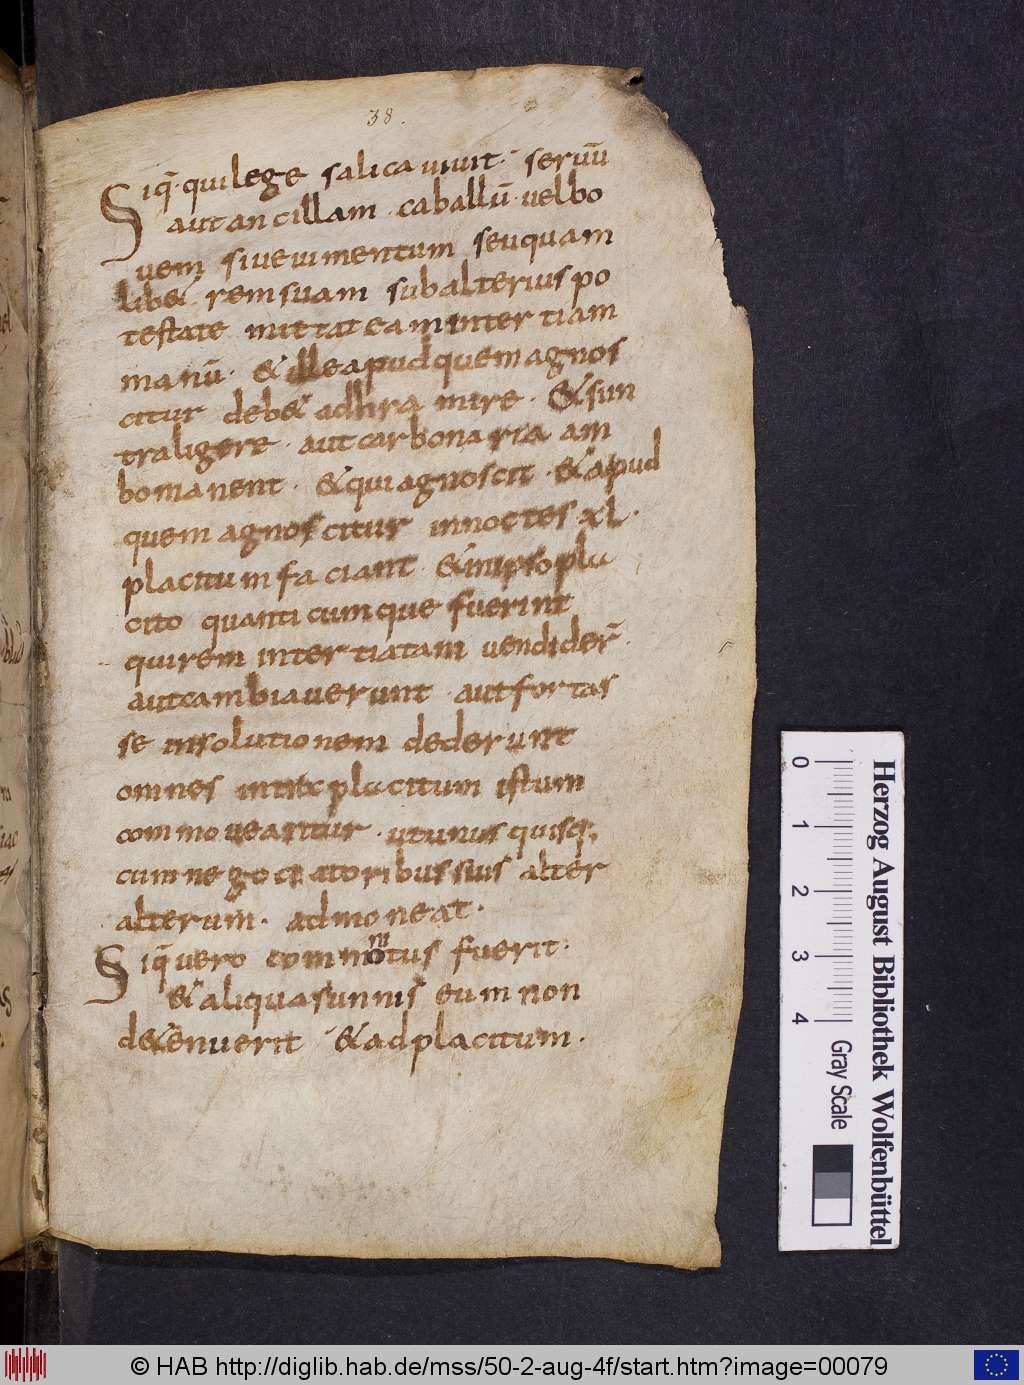 38.
Siq̄· qui lege salica vivit· servū
aut ancillam· caballū· vel bo
vem sive iumentum seu quam
lib& rem suam sub alterius po
testate mittat eam inter tiam
manū· & ille apud quem agnos
citur deb& adhra mire· & sun
tra ligere· aut carbonaria am
bo manent· & qui agnoscit· & apud
quem agnoscitur in noctes xl·
placitum faciant & in ipso pla
cito quanticumque fuerint
qui rem inter tiatam vendider̄·
aut cambiaverunt· aut fortas
se in solutionem dederunt
omnes placitum istum
commoveantur· ut unusquisq;
cum negociatoribus suis alter
alterum· admoneat·
Siq̄ vero commotus fuerit·
m
& aliqua sunnis eum non
d&enuerit & ad placitum·
0 1 2 3 4
Gray Scale
Herzog August Bibliothek Wolfenbüttel
© HAB http://diglib.hab.de/mss/50-2-aug-4f/start.htm?image=00079